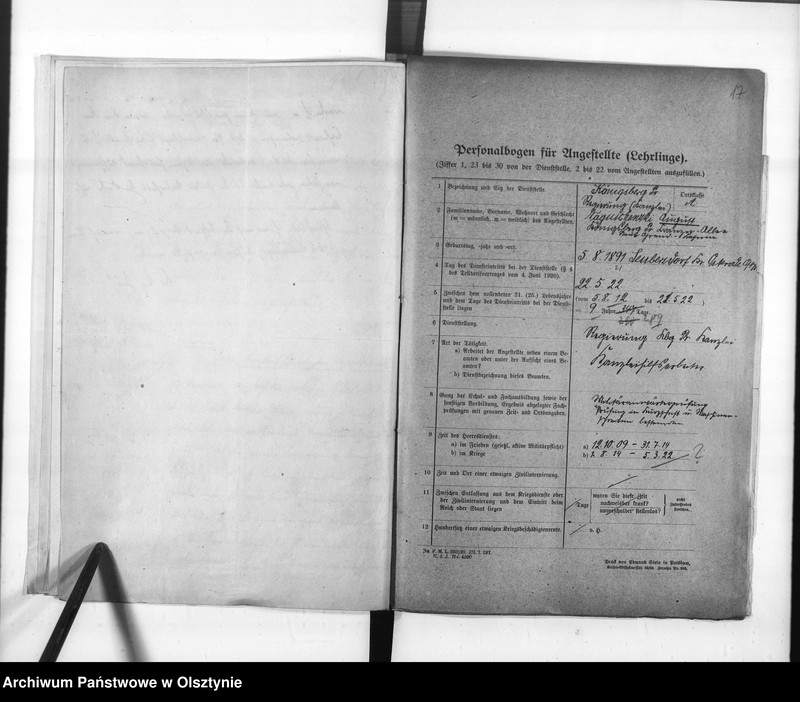 17
Personalbogen für Angestellte (Lehrlinge).
(Ziffer 1, 23 bis 30 von der Dienststelle, 2 bis 22 vom Angestellten auszufüllen.)
1 Bezeichnung und Sitz der Dienststelle
Königsberg Pr
Ortsklasse
A
Regierung (Kanzlei)
2 Familienname, Vorname, Wohnort und Geschlecht
(m = männlich, w = weiblich) des Angestellten.
August
Königsberg Pr
3 Geburtstag, -jahr und -ort.
5. 8. 1891
4 Tag des Diensteintritts bei der Dienststelle (§ 4
des Teiltarifvertrages vom 4. Juni 1920).
22. 5. 22
5 Zwischen dem vollendeten 21. (25.) Lebensjahre
und dem Tage des Diensteintritts bei der Dienst-
stelle liegen
(vom 5. 8. 12 bis 22. 5. 22)
9 Jahre Tage
289
6 Dienststellung.
Regierung Kbg Pr Kanzlei
7 Art der Tätigkeit.
a) Arbeitet der Angestellte neben einem Be-
amten oder unter der Aufsicht eines Be-
amten?
b) Dienstbezeichnung dieses Beamten.
Kanzleihilfsarbeiter
8 Gang der Schul- und Fachausbildung sowie der
sonstigen Vorbildung, Ergebnis abgelegter Fach-
prüfungen mit genauen Zeit- und Ortsangaben.
Militäranwärterprüfung
Prüfung in Kurzschrift u Maschinen-
schreiben bestanden
9 Zeit des Heeresdienstes:
a) im Frieden (gesetzl. aktive Militärpflicht)
b) im Kriege
a) 12. 10. 09 – 31. 7. 14
b) 2. 8. 14 – 5. 3. 22 ?
10 Zeit und Ort einer etwaigen Zivilinternierung.
11 Zwischen Entlassung aus dem Kriegsdienste oder
der Zivilinternierung und dem Eintritt beim
Reich oder Staat liegen
Tage
waren Sie diese Zeit
nachweisbar krank?
unverschuldet stellenlos?
nicht
Zutreffendes
streichen.
12 Hundertsatz einer etwaigen Kriegsbeschädigtenrente.
v. H.
Archiwum Państwowe w Olsztynie